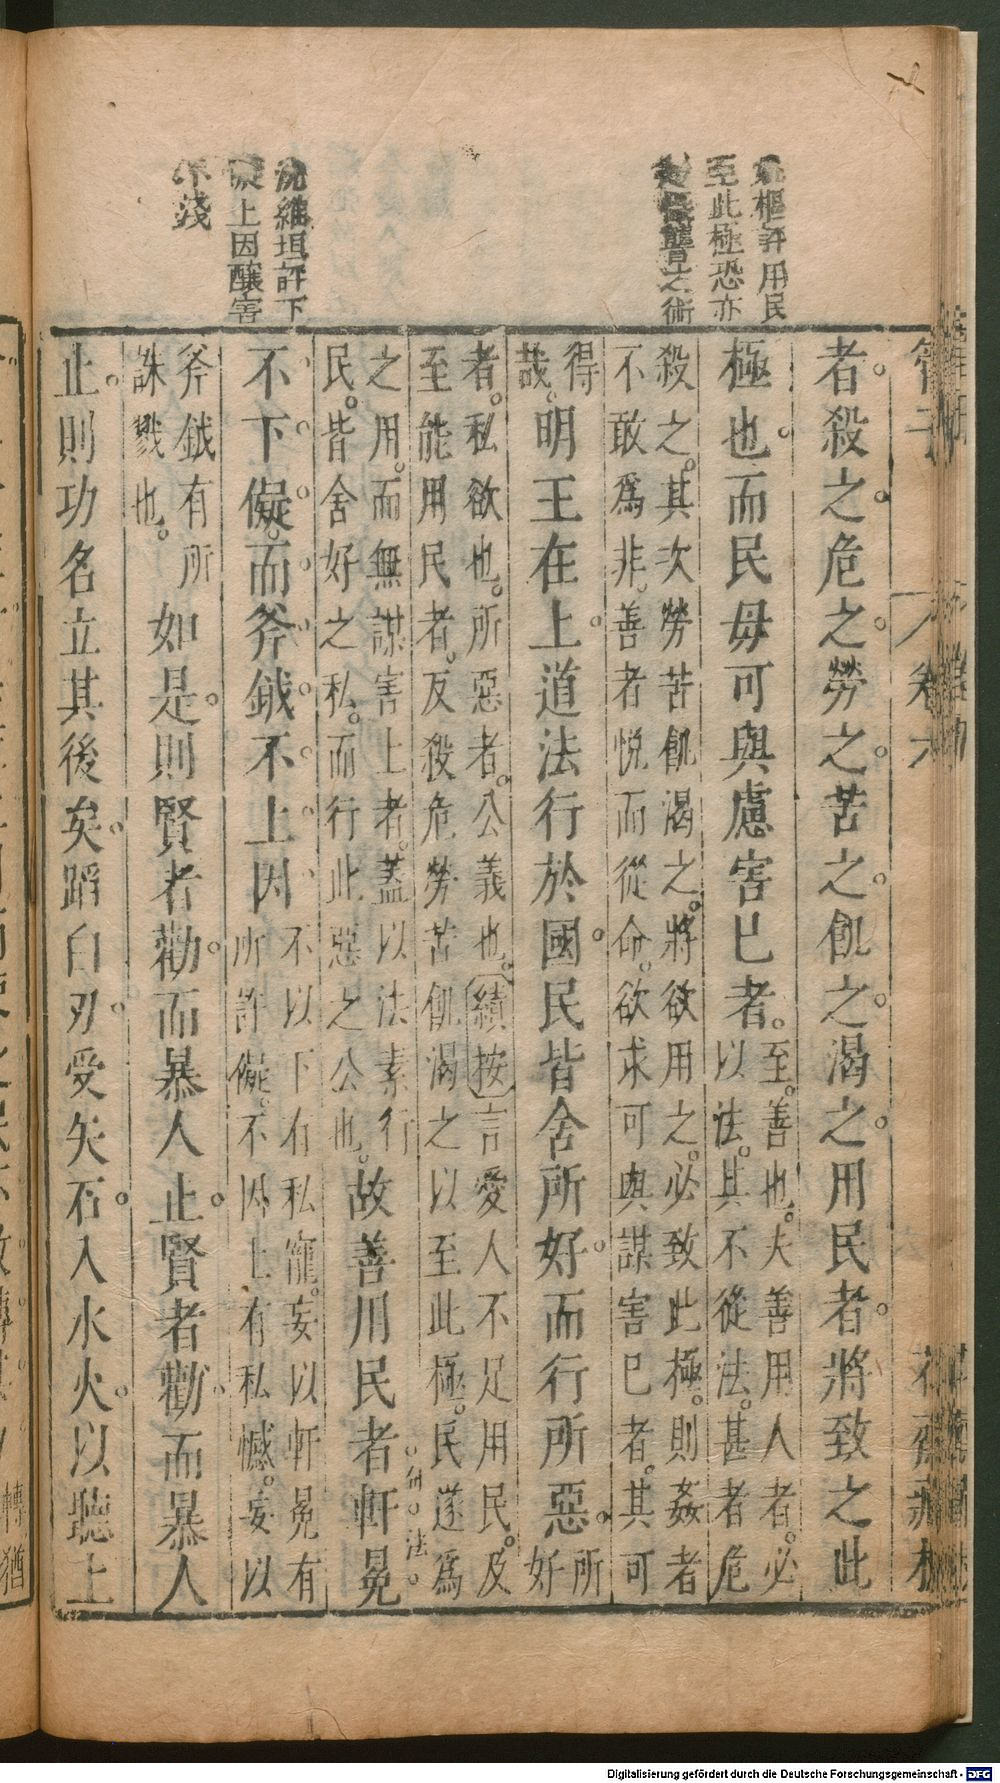 樞評用民
至此極恐亦
之術
沈維垣評下
儗上因釀害
不淺
者殺之危之勞之苦之飢之渴之用民者將致之此
極也而民毋可與慮害已者至善也夫善用人者必
以法其不從法甚者危
殺之其次勞苦飢渴之將欲用之必致此極則姦者
不敢爲非善者悅而從命欲求可與謀害已者其可
得
哉明王在上道法行於國民皆舍所好而行所惡所
好
者私欲也所惡者公義也續按言愛人不足用民及
至能用民者反殺危勞苦飢渴之以至此極民遂爲
之用而無謀害上者蓋以法素行
民皆舍好之私而行此惡之公也故善用民者軒冕
不下儗而斧鉞不上因不以下有私寵妄以軒冕有
所許儗不因上有私憾妄以
斧鉞有所
誅戮也如是則賢者勸而暴人止賢者勸而暴人
止則功名立其後矣蹈白刃受矢石入水火以聽上
卷六
Digitalisierung gefördert durch die Deutsche Forschungsgemeinschaft - DFG